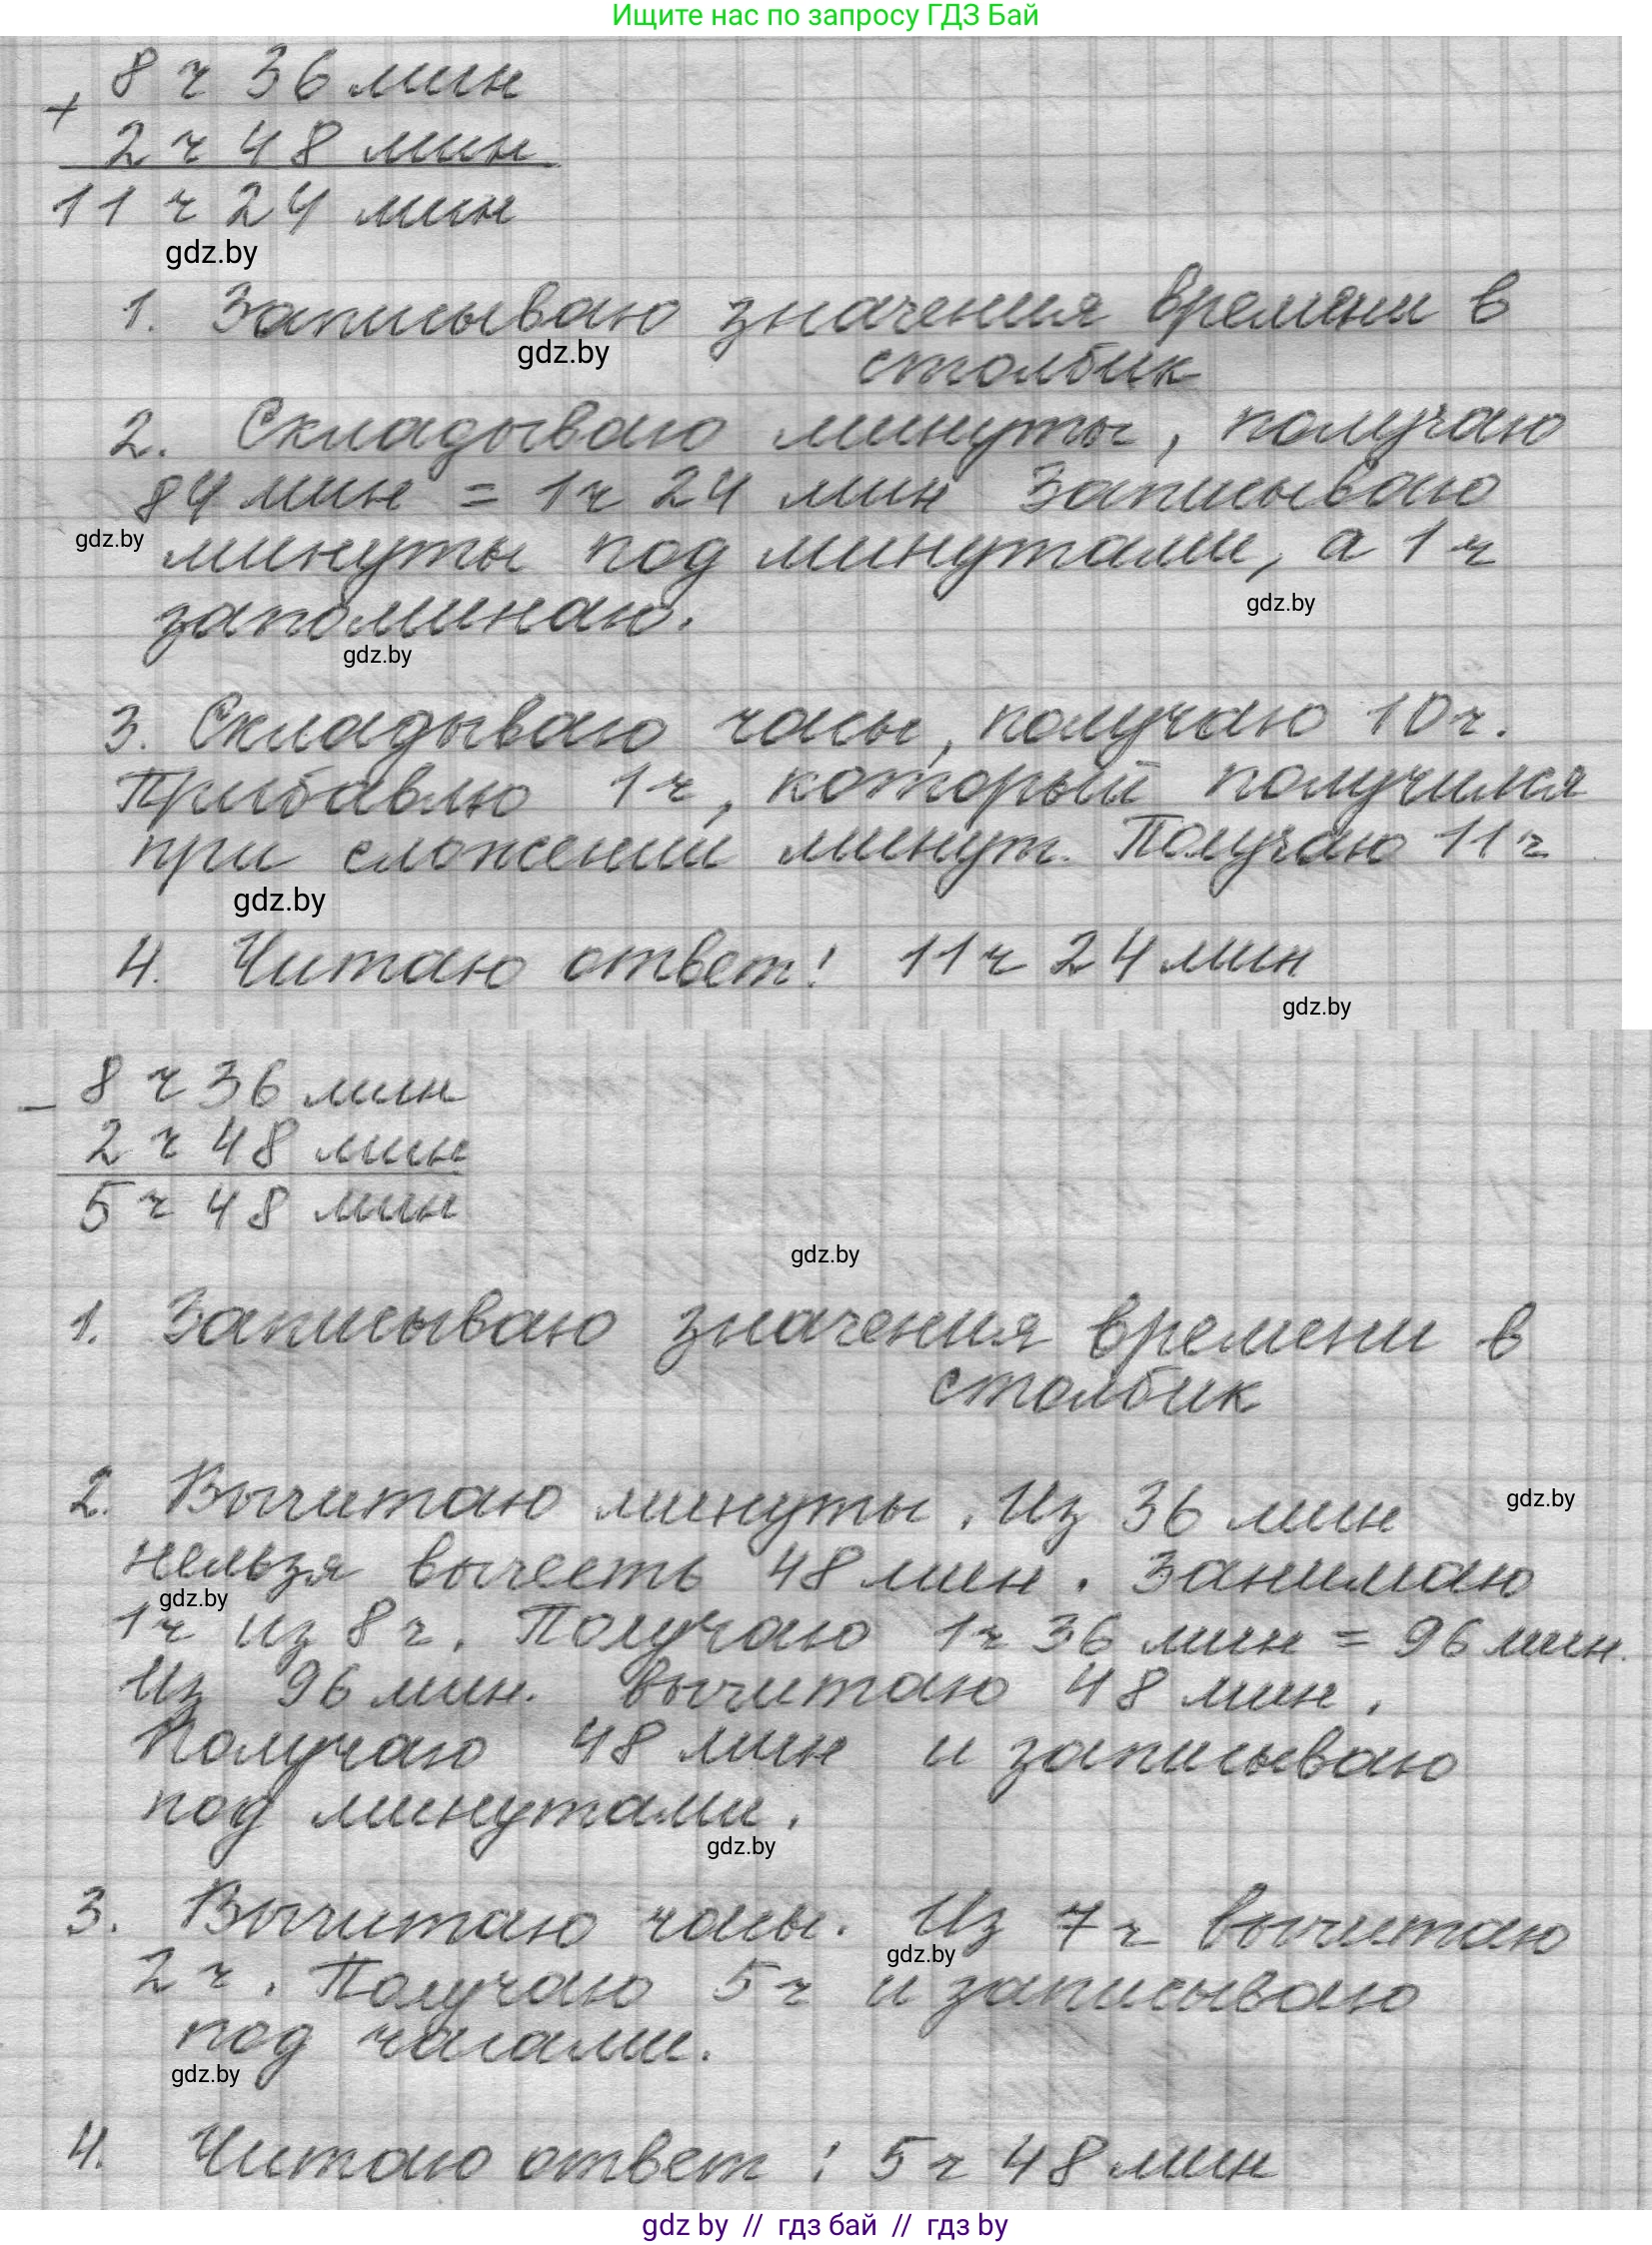 Ищите нас по запросу ГДЗ Бай
8 ч 36 мин
+
2 ч 48 мин
11 ч 24 мин
gdz.by
1. Записываю значения времени в
gdz.by
столбик
2. Складываю минуты, получаю
84 мин = 1ч 24 мин Записываю
gdz.by
минуты под минутами, а 1 ч
gdz.by
запоминаю.
gdz.by
3. Складываю часы, получаю 10ч.
Прибавлю 1ч, который получился
при сложении минут. Получаю 11ч
gdz.by
4. Читаю ответ: 11ч 24 мин
gdz.by
8 ч 36 мин
-
2 ч 48 мин
5 ч 48 мин
gdz.by
1. Записываю значения времени в
столбик
2. Вычитаю минуты. Из 36 мин
gdz.by
нельзя вычесть 48 мин. Занимаю
gdz.by
1ч из 8ч. Получаю 1ч 36 мин = 96 мин.
Из 96 мин. вычитаю 48 мин.
Получаю 48 мин и записываю
под минутами.
gdz.by
3. Вычитаю часы. Из 7ч вычитаю
gdz.by
2ч. Получаю 5ч и записываю
под часами.
gdz.by
4. Читаю ответ: 5ч 48 мин
gdz by // гдз бай // гдз by